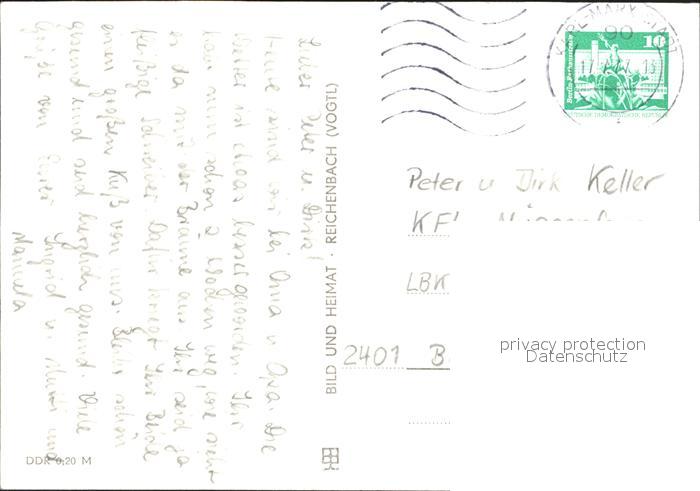 Lieber Peter u. Dirk!
Heute sind wir bei Oma u. Opa. Die
Wetter ist etwas besser geworden. Ihr
schon 2 Wochen weg, wie sieht
es da mit der Bräune aus. Ihr seid ja
fleißige Schreiber. Dafür kriegt Ihr Beide
einen großen Kuß von uns. Bleibt schön
gesund und seid herzlich gegrüßt. Viele
Grüße von Eurer Ingrid u. Mutti und
Manuela
BILD UND HEIMAT · REICHENBACH (VOGTL)
DDR 0,20 M
KARL-MARX-STADT
90
10
Berlin
DEUTSCHE DEMOKRATISCHE REPUBLIK
Peter u Dirk Keller
LBK
2401 B
privacy protection
Datenschutz